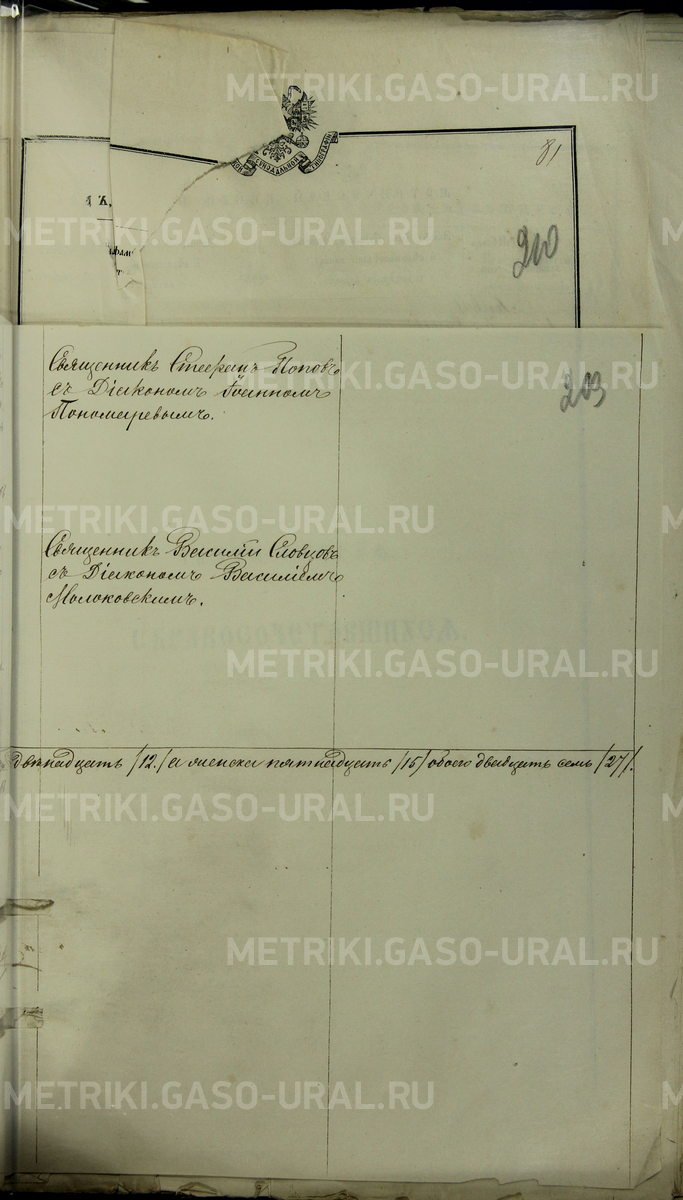 METRIKI.GASO-URAL.RU
81
СИНОДАЛЬНОЙ ТИПОГРАФІИ
METRIKI.GASO-URAL.RU
210
Священникъ Стефанъ Поповъ
METRIKI.GASO-URAL.RU
съ Діакономъ Іоанномъ
203
Пономаревымъ.
METRIKI.GASO-URAL.RU
Священникъ Василій Словцовъ
съ Діакономъ Василіемъ
Молоковскимъ.
METRIKI.GASO-URAL.RU
двѣнадцать /12./ а женска пятнадцать /15/ обоего двадцать семь /27/.
METRIKI.GASO-URAL.RU
METRIKI.GASO-URAL.RU
METRIKI.GASO-URAL.RU